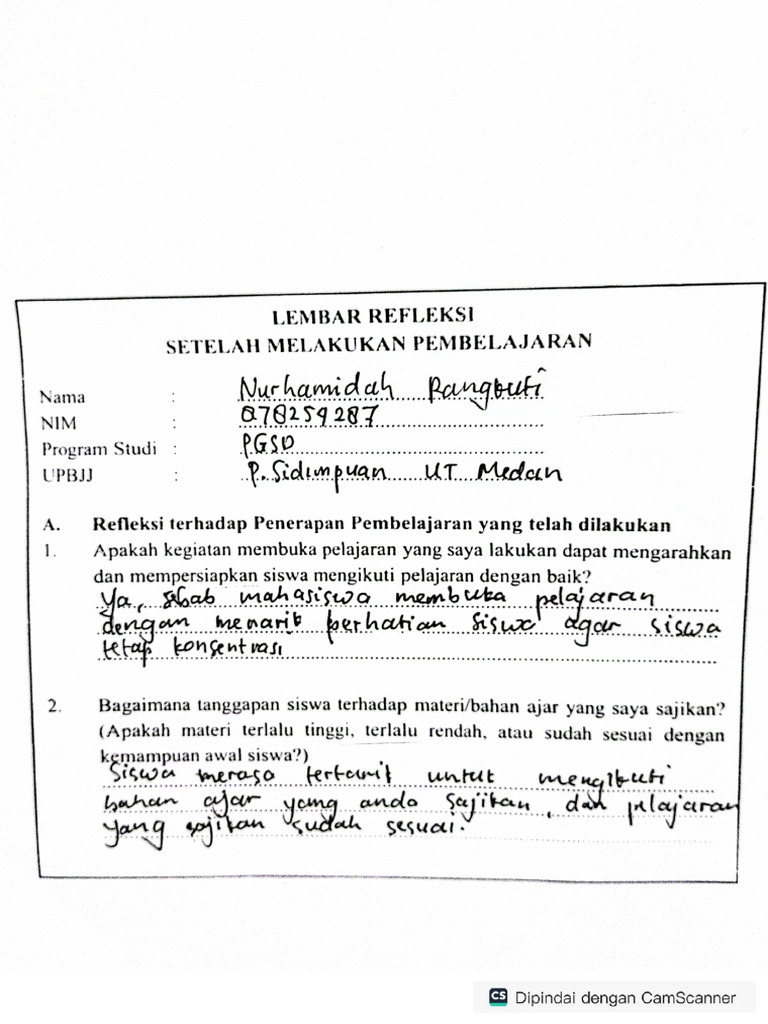 LEMBAR REFLEKSI
SETELAH MELAKUKAN PEMBELAJARAN
Nama : Nurhamidah Rangkuti
NIM : 878259287
Program Studi : PGSD
UPBJJ : P. Sidimpuan UT Medan
A. Refleksi terhadap Penerapan Pembelajaran yang telah dilakukan
1. Apakah kegiatan membuka pelajaran yang saya lakukan dapat mengarahkan
dan mempersiapkan siswa mengikuti pelajaran dengan baik?
Ya, sebab mahasiswa membuka pelajaran
dengan menarik perhatian siswa agar siswa
tetap konsentrasi
2. Bagaimana tanggapan siswa terhadap materi/bahan ajar yang saya sajikan?
(Apakah materi terlalu tinggi, terlalu rendah, atau sudah sesuai dengan
kemampuan awal siswa?)
Siswa merasa tertarik untuk mengikuti
bahan ajar yang anda sajikan, dan pelajaran
yang sajikan sudah sesuai.
CS Dipindai dengan CamScanner